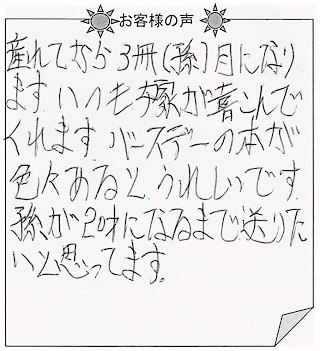 お客様の声
産れてから3冊(孫)目になり
ます いつも家が喜こんで
くれます バースデーの本が
色々あると、うれしいです
孫が20才になるまで送りた
いと思ってます。